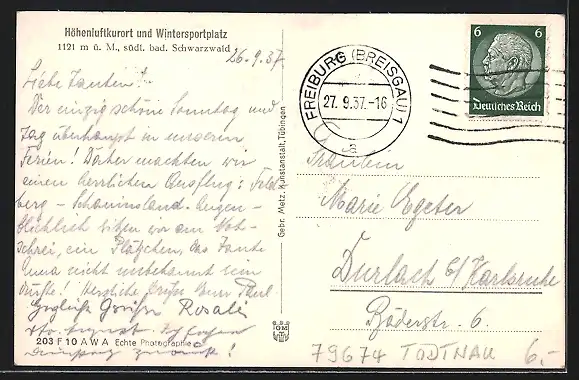 Höhenluftkurort und Wintersportplatz
1121 m ü. M., südl. bad. Schwarzwald
26.9.37
Liebe Tanten!
Der einzig schöne Sonntag und
Tag überhaupt in unseren
Ferien! Daher machten wir
einen herrlichen Ausflug: Feld-
berg – Schauinsland. Augen-
blicklich sitzen wir am Not-
schrei, ein Plätzchen, das Tante
nicht unbekannt sein
dürfte! Herzliche Grüße Paul
Grüße Rosali
203 F 10 A W A Echte Photographie
Gebr. Metz, Kunstanstalt, Tübingen
FREIBURG (BREISGAU) 1
27. 9. 37.-16
6 6
Deutsches Reich
Fräulein
Marie Egeter
Durlach b/Karlsruhe
Bäderstr. 6.
79674 TODTNAU 6,-